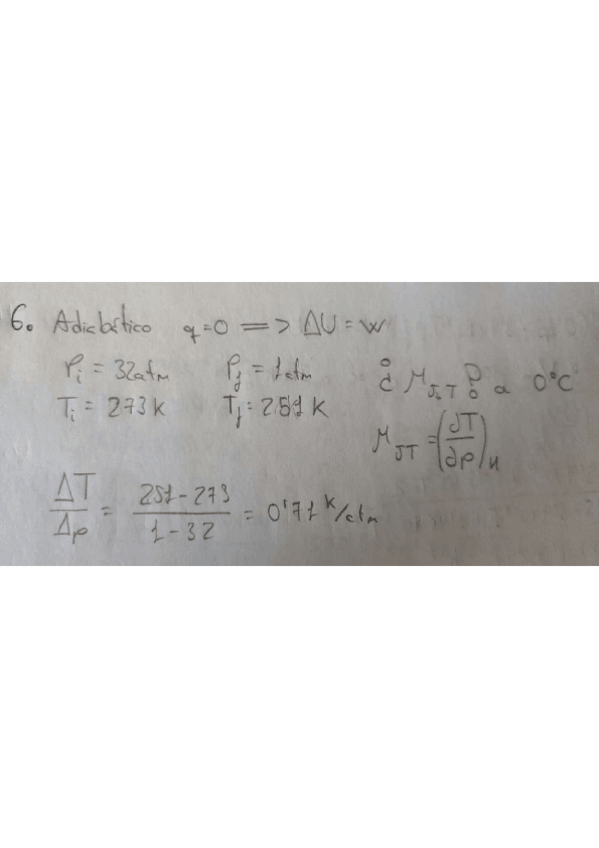 6. Adiabático q=0 => ΔU = w
Pi = 32 atm Pf = 1 atm ¿ μJ.T ? a 0°C
Ti = 273 K Tf = 251 K
μJT = (∂T/∂p)H
ΔT/Δp = 251 - 273/1 - 32 = 0'71 K/atm